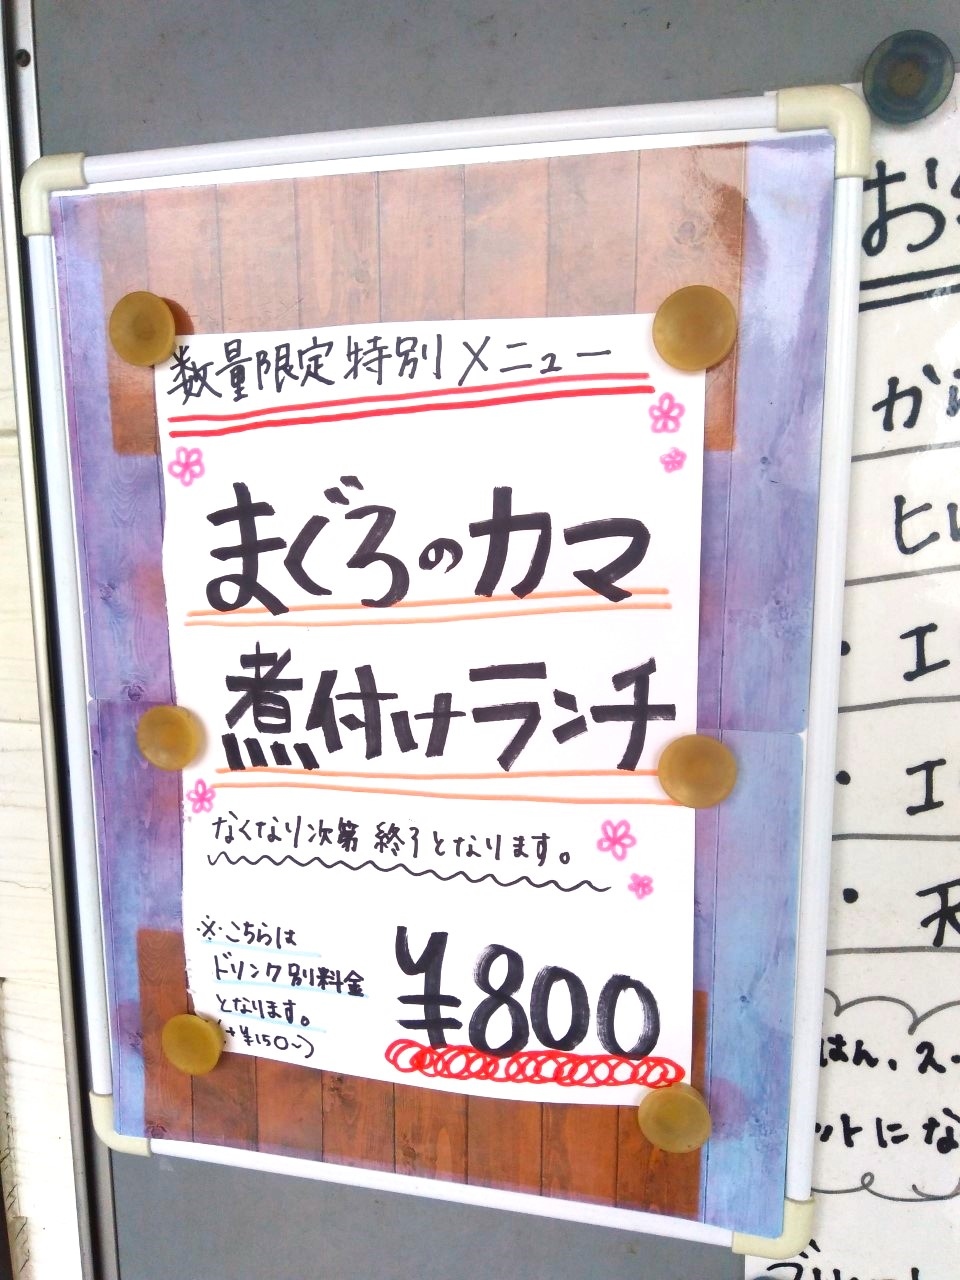 数量限定特別メニュー
まぐろのカマ
煮付けランチ
なくなり次第 終了となります。
※こちらは
ドリンク別料金
となります。
(+¥150~)
¥800
お
か
ヒレ
・エ
・エ
・天
はん、スー
ットにな